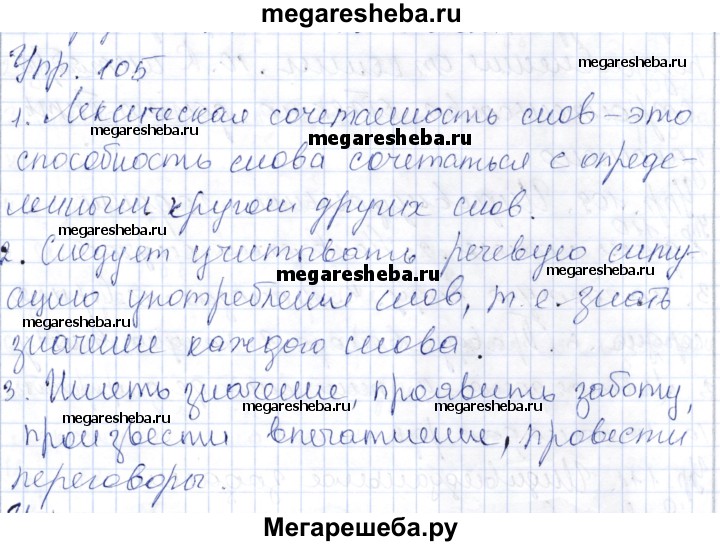 megaresheba.ru
Упр. 105
megaresheba.ru
megaresheba.ru
1. Лексическая сочетаемость слов - это
megaresheba.ru
megaresheba.ru
способность слова сочетаться с опреде-
ленным кругом других слов.
megaresheba.ru
megaresheba.ru
2. Следует учитывать речевую ситу-
megaresheba.ru
ацию употребления слов, т. е. знать
megaresheba.ru
megaresheba.ru
значение каждого слова.
3. Иметь значение, проявить заботу,
megaresheba.ru
megaresheba.ru
megaresheba.ru
произвести впечатление, провести
переговоры.
megaresheba.ru
Мегарешеба.ру